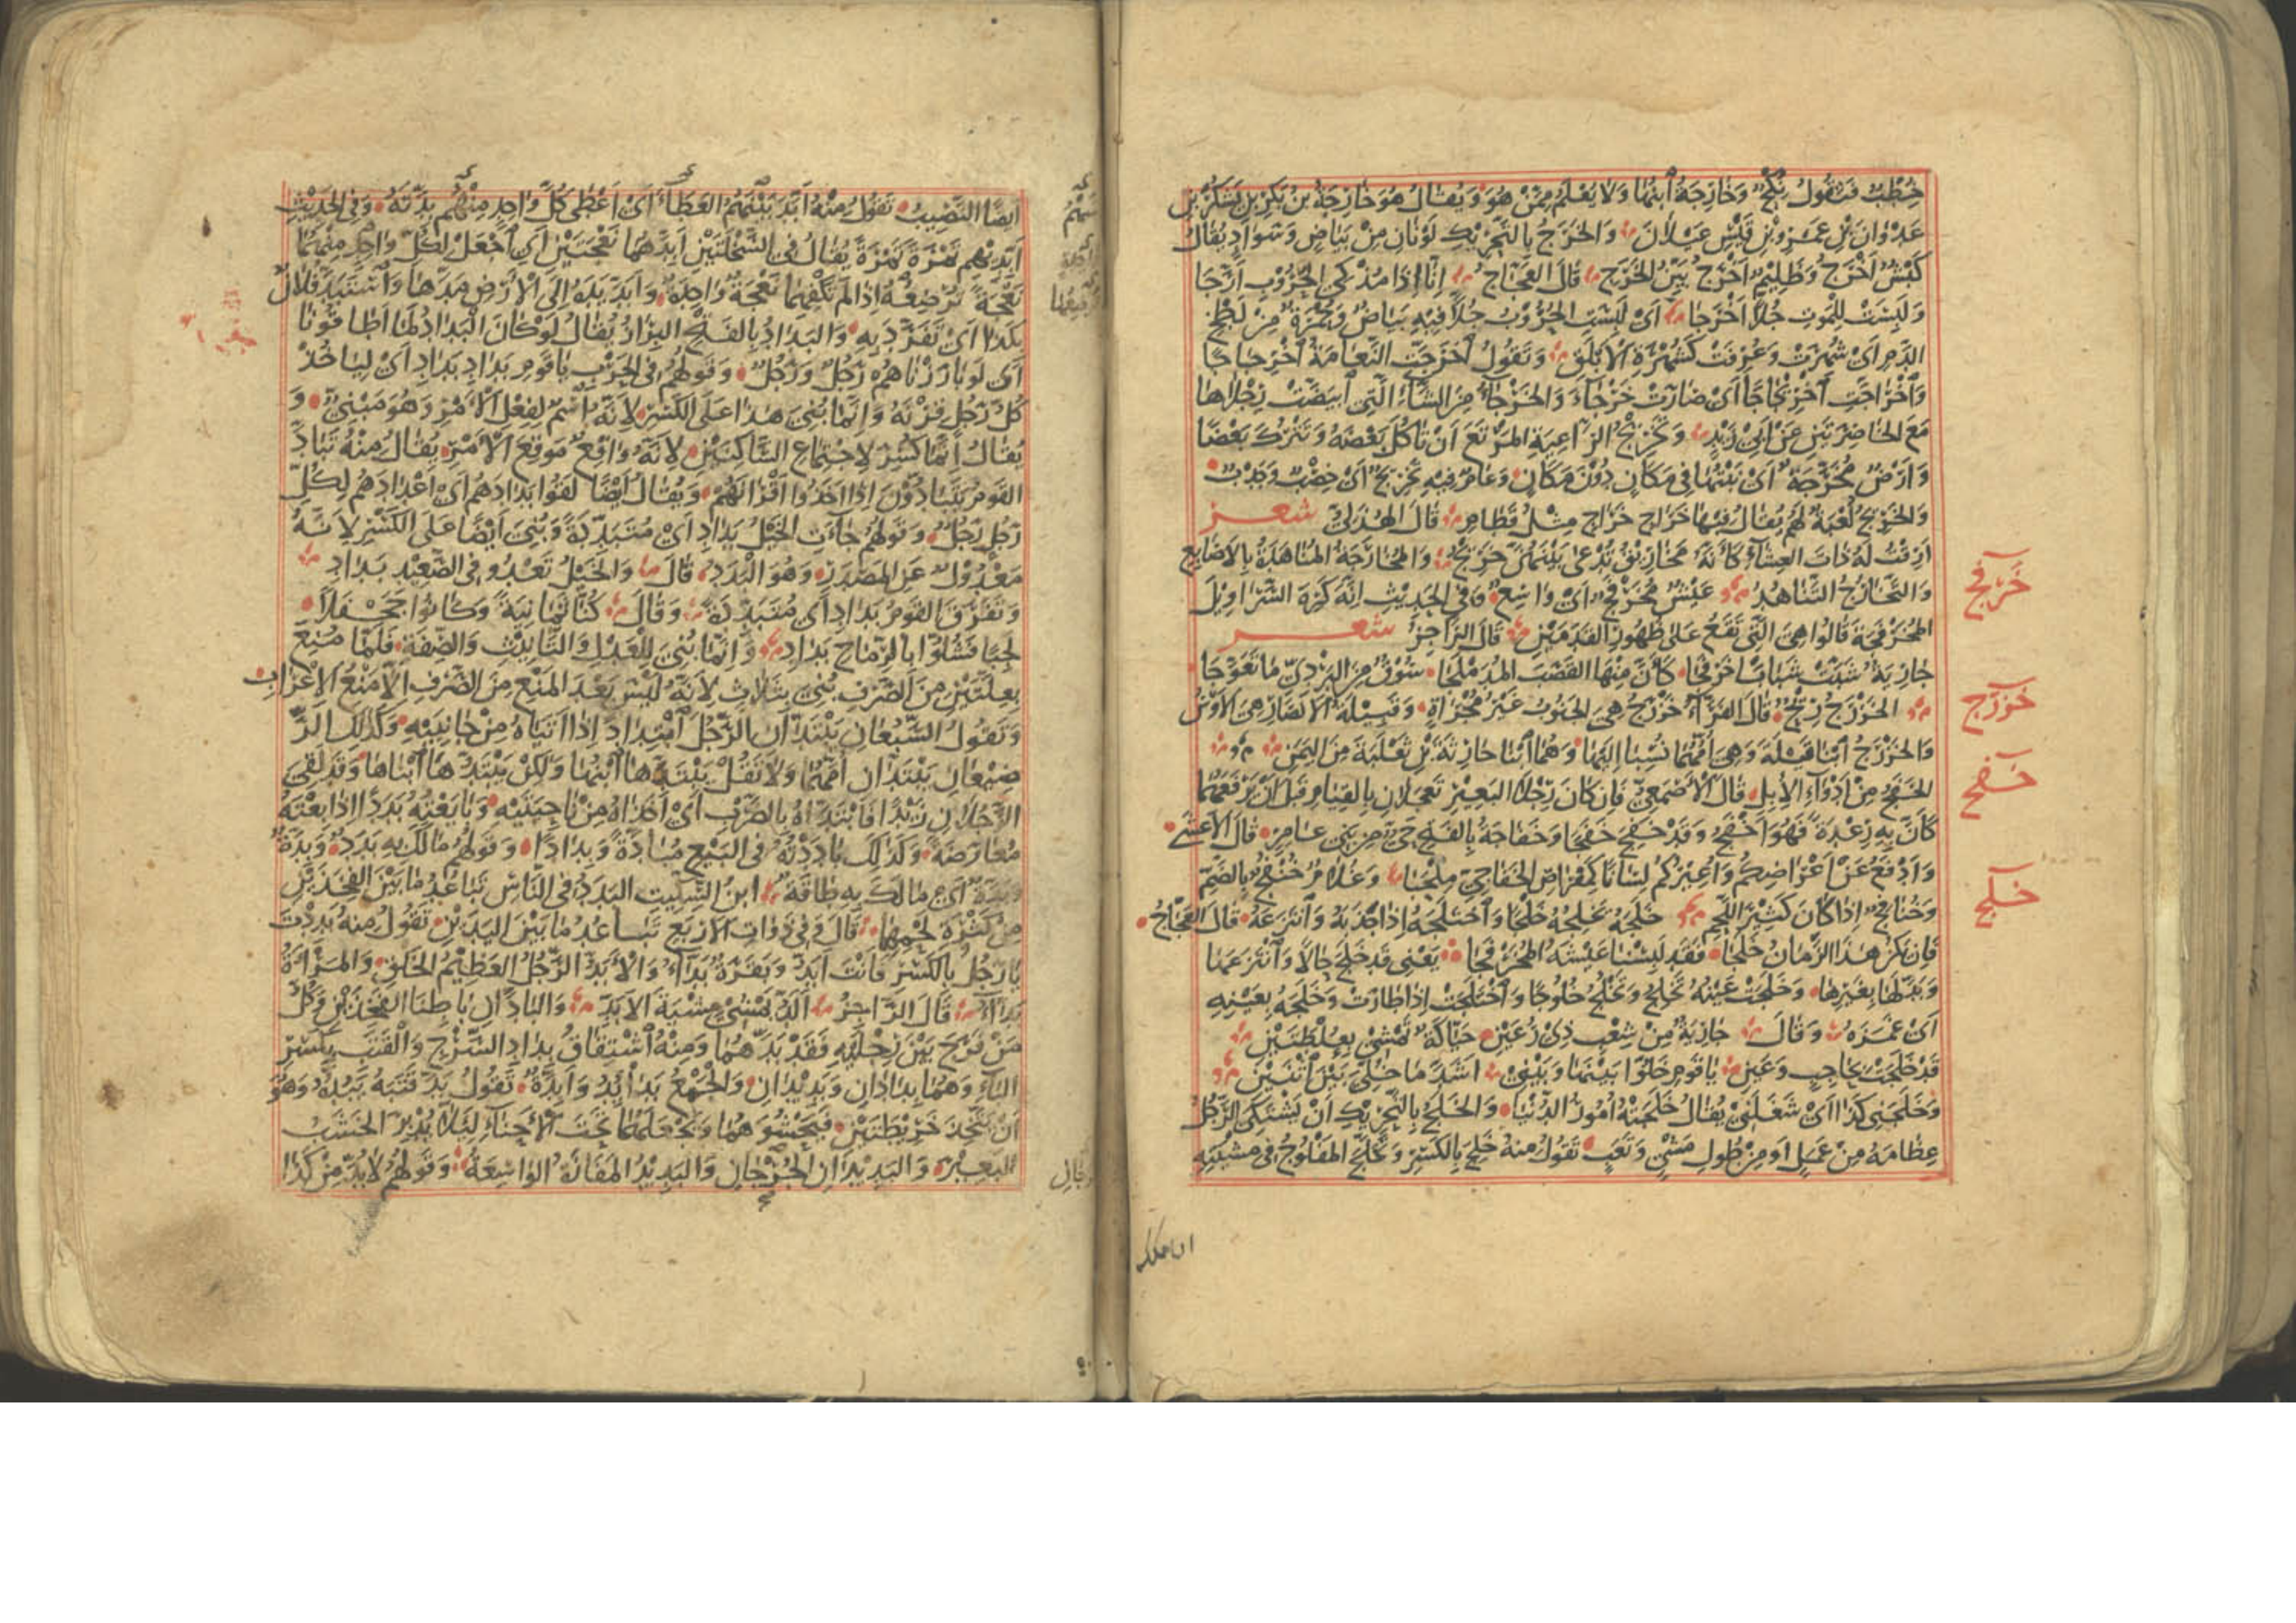 خُطْبٌ فَتَقُولُ نُكْحٌ وَخَارِجَةُ ابْنُهَا وَلَا يُعْلَمُ مِمَّنْ هُوَ وَيُقَالُ هُوَ خَارِجَةُ بْنُ بَكْرِ بْنِ يَشْكُرَ بْنِ
عَدْوَانَ بْنِ عَمْرِو بْنِ قَيْسِ عَيْلَانَ وَالْخَرَجُ بِالتَّحْرِيكِ لَوْنَانِ مِنْ بَيَاضٍ وَسَوَادٍ يُقَالُ
كَبْشٌ أَخْرَجُ وَظَلِيمٌ أَخْرَجُ بَيِّنُ الْخَرَجِ قَالَ الْعَجَّاجُ إِنَّا إِذَا مُذْكِي الْحُرُوبِ أَرَّجَا
وَلَبِسَتْ لِلْمَوْتِ جُلًّا أَخْرَجَا أَيْ لَبِسَتِ الْحُرُوبُ جُلًّا فِيهِ بَيَاضٌ وَحُمْرَةٌ مِنْ لَطْخِ
الدَّمِ أَيْ شُهِرَتْ وَعُرِفَتْ كَشُهْرَةِ الْأَبْلَقِ وَتَقُولُ اخْرَجَّتِ النَّعَامَةُ اخْرِجَاجًا
وَاخْرَاجَّتِ اخْرِيجَاجًا أَيْ صَارَتْ خَرْجَاءَ وَالْخَرْجَاءُ مِنَ الشَّاءِ الَّتِي ابْيَضَّتْ رِجْلَاهَا
مَعَ الْخَاصِرَتَيْنِ عَنْ أَبِي زَيْدٍ وَتَخْرِيجُ الرَّاعِيَةِ الْمَرْتَعَ أَنْ تَأْكُلَ بَعْضَهُ وَتَتْرُكَ بَعْضًا
وَأَرْضٌ مُخَرَّجَةٌ أَيْ نَبْتُهَا فِي مَكَانٍ دُونَ مَكَانٍ وَعَامٌ فِيهِ تَخْرِيجٌ أَيْ خِصْبٌ وَجَدْبٌ
وَالْخَرِيجُ لُعْبَةٌ لَهُمْ يُقَالُ فِيهَا خَرَاجِ خَرَاجِ مِثْلُ قَطَامِ قَالَ الْهُذَلِيُّ شعر
أَرِقْتُ لَهُ ذَاتَ الْعِشَاءِ كَأَنَّهُ مَخَارِيقُ يُدْعَى بَيْنَهُنَّ خَرِيجُ وَالْمُخَارَجَةُ الْمُنَاهَدَةُ بِالْأَصَابِعِ
خَرْفَج
وَالتَّخَارُجُ التَّنَاهُدُ عَيْشٌ مُخَرْفَجٌ أَيْ وَاسِعٌ وَفِي الْحَدِيثِ إِنَّهُ كَرِهَ السَّرَاوِيلَ
الْمُخَرْفَجَةَ قَالُوا هِيَ الَّتِي تَقَعُ عَلَى ظُهُورِ الْقَدَمَيْنِ قَالَ الرَّاجِزُ شعر
جَارِيَةٌ شَبَّتْ شَبَابًا خَرْفَجَا كَأَنَّ مِنْهَا الْقَصَبَ الْمُدَمْلَجَا سُوقٌ مِنَ الْبَرْدِيِّ مَا تَعَوَّجَا
خَزْرَج
الْخَزْرَجُ رِيحٌ قَالَ الْفَرَّاءُ خَزْرَجُ هِيَ الْجَنُوبُ غَيْرُ مُجْرَاةٍ وَقَبِيلَةُ الْأَنْصَارِ هِيَ الْأَوْسُ
وَالْخَزْرَجُ ابْنَا قَيْلَةَ وَهِيَ أُمُّهُمَا نُسِبَا إِلَيْهَا وَهُمَا ابْنَا حَارِثَةَ بْنِ ثَعْلَبَةَ مِنَ الْيَمَنِ
خفج
الْخَفَجُ مِنْ أَدْوَاءِ الْإِبِلِ قَالَ الْأَصْمَعِيُّ فَإِنْ كَانَ رِجْلَا الْبَعِيرِ تَعْجَلَانِ بِالْقِيَامِ قَبْلَ أَنْ يَرْفَعَهُمَا
كَأَنَّ بِهِ رِعْدَةً فَهُوَ أَخْفَجُ وَقَدْ خَفِجَ خَفَجًا وَخَفَاجَةُ بِالْفَتْحِ حَيٌّ مِنْ بَنِي عَامِرٍ قَالَ الْأَعْشَى
وَأَدْفَعُ عَنْ أَعْرَاضِكُمْ وَأُعِيرُكُمْ لِسَانًا كَمِقْرَاضِ الْخَفَاجِيِّ مِلْحَبَا وَغُلَامٌ خُنْفُجٌ بِالضَّمِّ
خلج
وَخُنَافِجٌ إِذَا كَانَ كَثِيرَ اللَّحْمِ خَلَجَهُ يَخْلِجُهُ خَلْجًا وَاخْتَلَجَهُ إِذَا جَذَبَهُ وَانْتَزَعَهُ قَالَ الْعَجَّاجُ
فَإِنْ يَكُنْ هَذَا الزَّمَانُ خَلَجَا فَقَدْ لَبِسْنَا عَيْشَهُ الْمُخَرْفَجَا يَعْنِي قَدْ خَلَجَ حَالًا وَانْتَزَعَهَا
وَبَدَّلَهَا بِغَيْرِهَا وَخَلَجَتْ عَيْنُهُ تَخْلِجُ وَتَخْلُجُ خُلُوجًا وَاخْتَلَجَتْ إِذَا طَارَتْ وَخَلَجَهُ بِعَيْنِهِ
أَيْ غَمَزَهُ وَقَالَ جَارِيَةٌ مِنْ شِعْبِ ذِي رُعَيْنِ حَيَّاكَةٌ تَمْشِي بِعُلْطَتَيْنِ
قَدْ خَلَجَتْ بِحَاجِبٍ وَعَيْنِ يَا قَوْمِ خَلُّوا بَيْنَهَا وَبَيْنِي أَشَدَّ مَا خُلِّيَ بَيْنَ اثْنَيْنِ
وَخَلَجَنِي كَذَا أَيْ شَغَلَنِي يُقَالُ خَلَجَتْهُ أُمُورُ الدُّنْيَا وَالْخَلَجُ بِالتَّحْرِيكِ أَنْ يَشْتَكِيَ الرَّجُلُ
عِظَامَهُ مِنْ عَمَلٍ أَوْ مِنْ طُولِ مَشْيٍ وَتَعَبٍ تَقُولُ مِنْهُ خَلِجَ بِالْكَسْرِ وَتَخَلَّجَ الْمَفْلُوجُ فِي مِشْيَتِهِ
أَيْضًا النَّصِيبُ تَقُولُ مِنْهُ أَبَدَّ بَيْنَهُمُ الْعَطَاءَ أَيْ أَعْطَى كُلَّ وَاحِدٍ مِنْهُمْ بُدَّتَهُ وَفِي الْحَدِيثِ
أَبِدِّيهِمْ تَمْرَةً تَمْرَةً يُقَالُ فِي السَّخْلَتَيْنِ أَبِدَّهُمَا نَعْجَتَيْنِ أَيِ اجْعَلْ لِكُلِّ وَاحِدٍ مِنْهُمَا
نَعْجَةً تُرْضِعُهُ إِذَا لَمْ تَكْفِهِمَا نَعْجَةٌ وَاحِدَةٌ وَأَبَدَّ يَدَهُ إِلَى الْأَرْضِ مَدَّهَا وَاسْتَبَدَّ فُلَانٌ
بِكَذَا أَيْ تَفَرَّدَ بِهِ وَالْبَدَادُ بِالْفَتْحِ الْبِرَازُ يُقَالُ لَوْ كَانَ الْبَدَادُ لَمَا أَطَاقُونَا
أَيْ لَوْ بَارَزْنَاهُمْ رَجُلٌ وَرَجُلٌ وَقَوْلُهُمْ فِي الْحَرْبِ يَا قَوْمِ بَدَادِ بَدَادِ أَيْ لِيَأْخُذْ
كُلُّ رَجُلٍ قِرْنَهُ وَإِنَّمَا بُنِيَ هَذَا عَلَى الْكَسْرِ لِأَنَّهُ اسْمٌ لِفِعْلِ الْأَمْرِ وَهُوَ مَبْنِيٌّ وَ
يُقَالُ إِنَّمَا كُسِرَ لِاجْتِمَاعِ السَّاكِنَيْنِ لِأَنَّهُ وَاقِعٌ مَوْقِعَ الْأَمْرِ يُقَالُ مِنْهُ تَبَادَّ
الْقَوْمُ يَتَبَادُّونَ إِذَا أَخَذُوا أَقْرَانَهُمْ وَيُقَالُ أَيْضًا لَقُوا بَدَادَهُمْ أَيْ أَعْدَادَهُمْ لِكُلِّ
رَجُلٍ رَجُلٌ وَقَوْلُهُمْ جَاءَتِ الْخَيْلُ بَدَادِ أَيْ مُتَبَدِّدَةً وَبُنِيَ أَيْضًا عَلَى الْكَسْرِ لِأَنَّهُ
مَعْدُولٌ عَنِ الْمَصْدَرِ وَهُوَ الْبَدَدُ قَالَ وَالْخَيْلُ تَعْدُو فِي الصَّعِيدِ بَدَادِ
وَتَفَرَّقَ الْقَوْمُ بَدَادِ أَيْ مُتَبَدِّدَةً وَقَالَ كُنَّا ثَمَانِيَةً وَكَانُوا جَحْفَلًا
لَجِبًا فَشُلُّوا بِالرِّمَاحِ بَدَادِ وَإِنَّمَا بُنِيَ لِلْعَدْلِ وَالتَّأْنِيثِ وَالصِّفَةِ فَلَمَّا مُنِعَ
بِعِلَّتَيْنِ مِنَ الصَّرْفِ بُنِيَ بِثَلَاثٍ لِأَنَّهُ لَيْسَ بَعْدَ الْمَنْعِ مِنَ الصَّرْفِ إِلَّا مَنْعُ الْإِعْرَابِ
وَتَقُولُ السَّبُعَانِ يَبْتَدَّانِ الرَّجُلَ ابْتِدَادًا إِذَا أَتَيَاهُ مِنْ جَانِبَيْهِ وَكَذَلِكَ الرَّ
ضِيعَانِ يَبْتَدَّانِ أُمَّهُمَا وَلَا تَقُلْ يَبْتَدُّهَا ابْنُهَا وَلَكِنْ يَبْتَدُّهَا ابْنَاهَا وَقَدْ لَقِيَ
الرَّجُلَانِ زَيْدًا فَابْتَدَّاهُ بِالضَّرْبِ أَيْ أَخَذَاهُ مِنْ نَاحِيَتَيْهِ وَبَايَعْتُهُ بَدَدًا إِذَا بِعْتَهُ
مُعَارَضَةً وَكَذَلِكَ بَادَدْتُهُ فِي الْبَيْعِ مُبَادَّةً وَبِدَادًا وَقَوْلُهُمْ مَا لَكَ بِهِ بَدَدٌ وَبَدَّةٌ
أَيْ مَا لَكَ بِهِ طَاقَةٌ ابْنُ السِّكِّيتِ الْبَدَدُ فِي النَّاسِ تَبَاعُدُ مَا بَيْنَ الْفَخِذَيْنِ
مِنْ كَثْرَةِ لَحْمِهِمَا قَالَ وَفِي ذَوَاتِ الْأَرْبَعِ تَبَاعُدُ مَا بَيْنَ الْيَدَيْنِ تَقُولُ مِنْهُ بَدِدْتَ
يَا رَجُلُ بِالْكَسْرِ فَأَنْتَ أَبَدُّ وَبَقَرَةٌ بَدَّاءُ وَالْأَبَدُّ الرَّجُلُ الْعَظِيمُ الْخَلْقِ وَالْمَرْأَةُ
بَدَّاءُ قَالَ الرَّاجِزُ أَلَدُّ يَمْشِي مِشْيَةَ الْأَبَدِّ وَالْبَادَّانِ بَاطِنَا الْفَخِذَيْنِ وَكُلُّ
مَنْ فَرَّجَ بَيْنَ رِجْلَيْهِ فَقَدْ بَدَّهُمَا وَمِنْهُ اشْتِقَاقُ بِدَادِ السَّرْجِ وَالْقَتَبِ بِكَسْرِ
الْبَاءِ وَهُمَا بِدَادَانِ وَبَدِيدَانِ وَالْجَمْعُ بَدَائِدُ وَأَبِدَّةٌ تَقُولُ بَدَّ قَتَبَهُ يَبُدُّهُ وَهُوَ
أَنْ يَتَّخِذَ خَرِيطَتَيْنِ فَيَحْشُوَهُمَا وَيَجْعَلَهُمَا تَحْتَ الْأَحْنَاءِ لِئَلَّا يُدْبِرَ الْخَشَبُ
الْبَعِيرَ وَالْبَدِيدَانِ الْخُرْجَانِ وَالْبَدِيدُ الْمَفَازَةُ الْوَاسِعَةُ وَقَوْلُهُمْ لَا بُدَّ مِنْ كَذَا